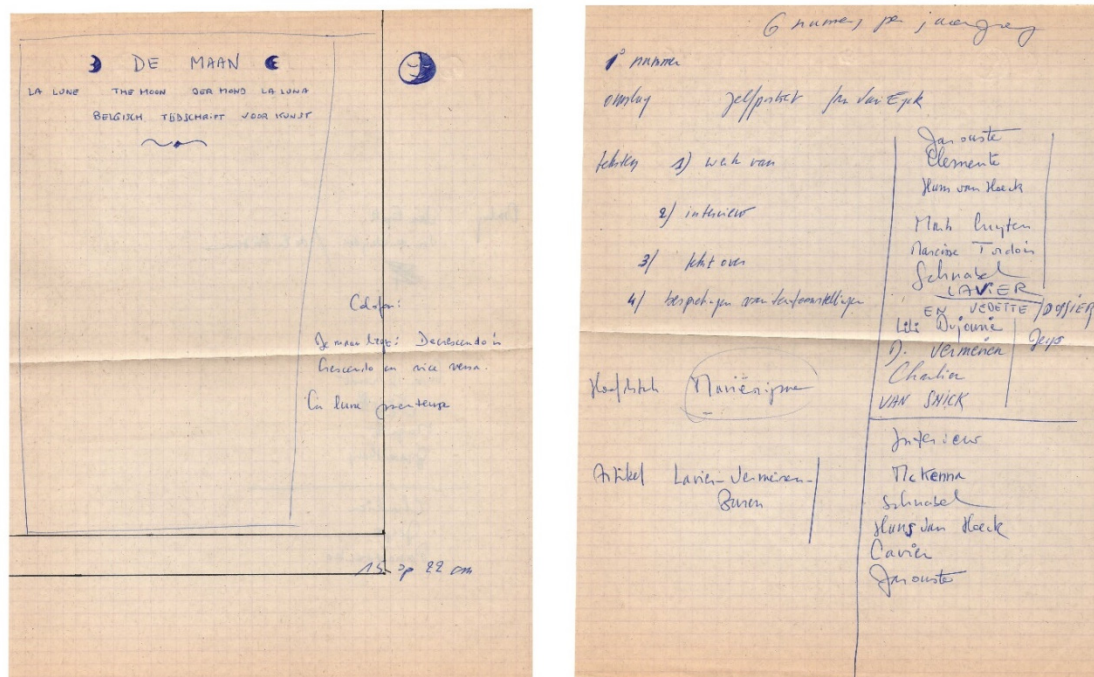 DE MAAN
LA LUNE THE MOON DER MOND LA LUNA
BELGISCH TIJDSCHRIFT VOOR KUNST
Colofon:
De maan liegt: Decrescendo is
Crescendo en vice versa.
La lune menteuse
15 op 22 cm
6 numers per jaargang
1° nummer
omslag zelfportret Jan Van Eyck
teksten 1) werk van
2) interview
3) tekst over
4) besprekingen van tentoonstellingen
Hoofdstuk Maniërisme
Artikel Lavier - Vermeiren -
Buren
Garouste
Clemente
Hans van Hoeck
Mark Luyten
Narcisse Tordoir
Schnabel
LAVIER
EN VEDETTE / DOSSIER
Lili Dujourie
D. Vermeiren
Charlier
VAN SNICK
Interview
McKenna
Schnabel
Hans van Hoeck
Lavier
Garouste